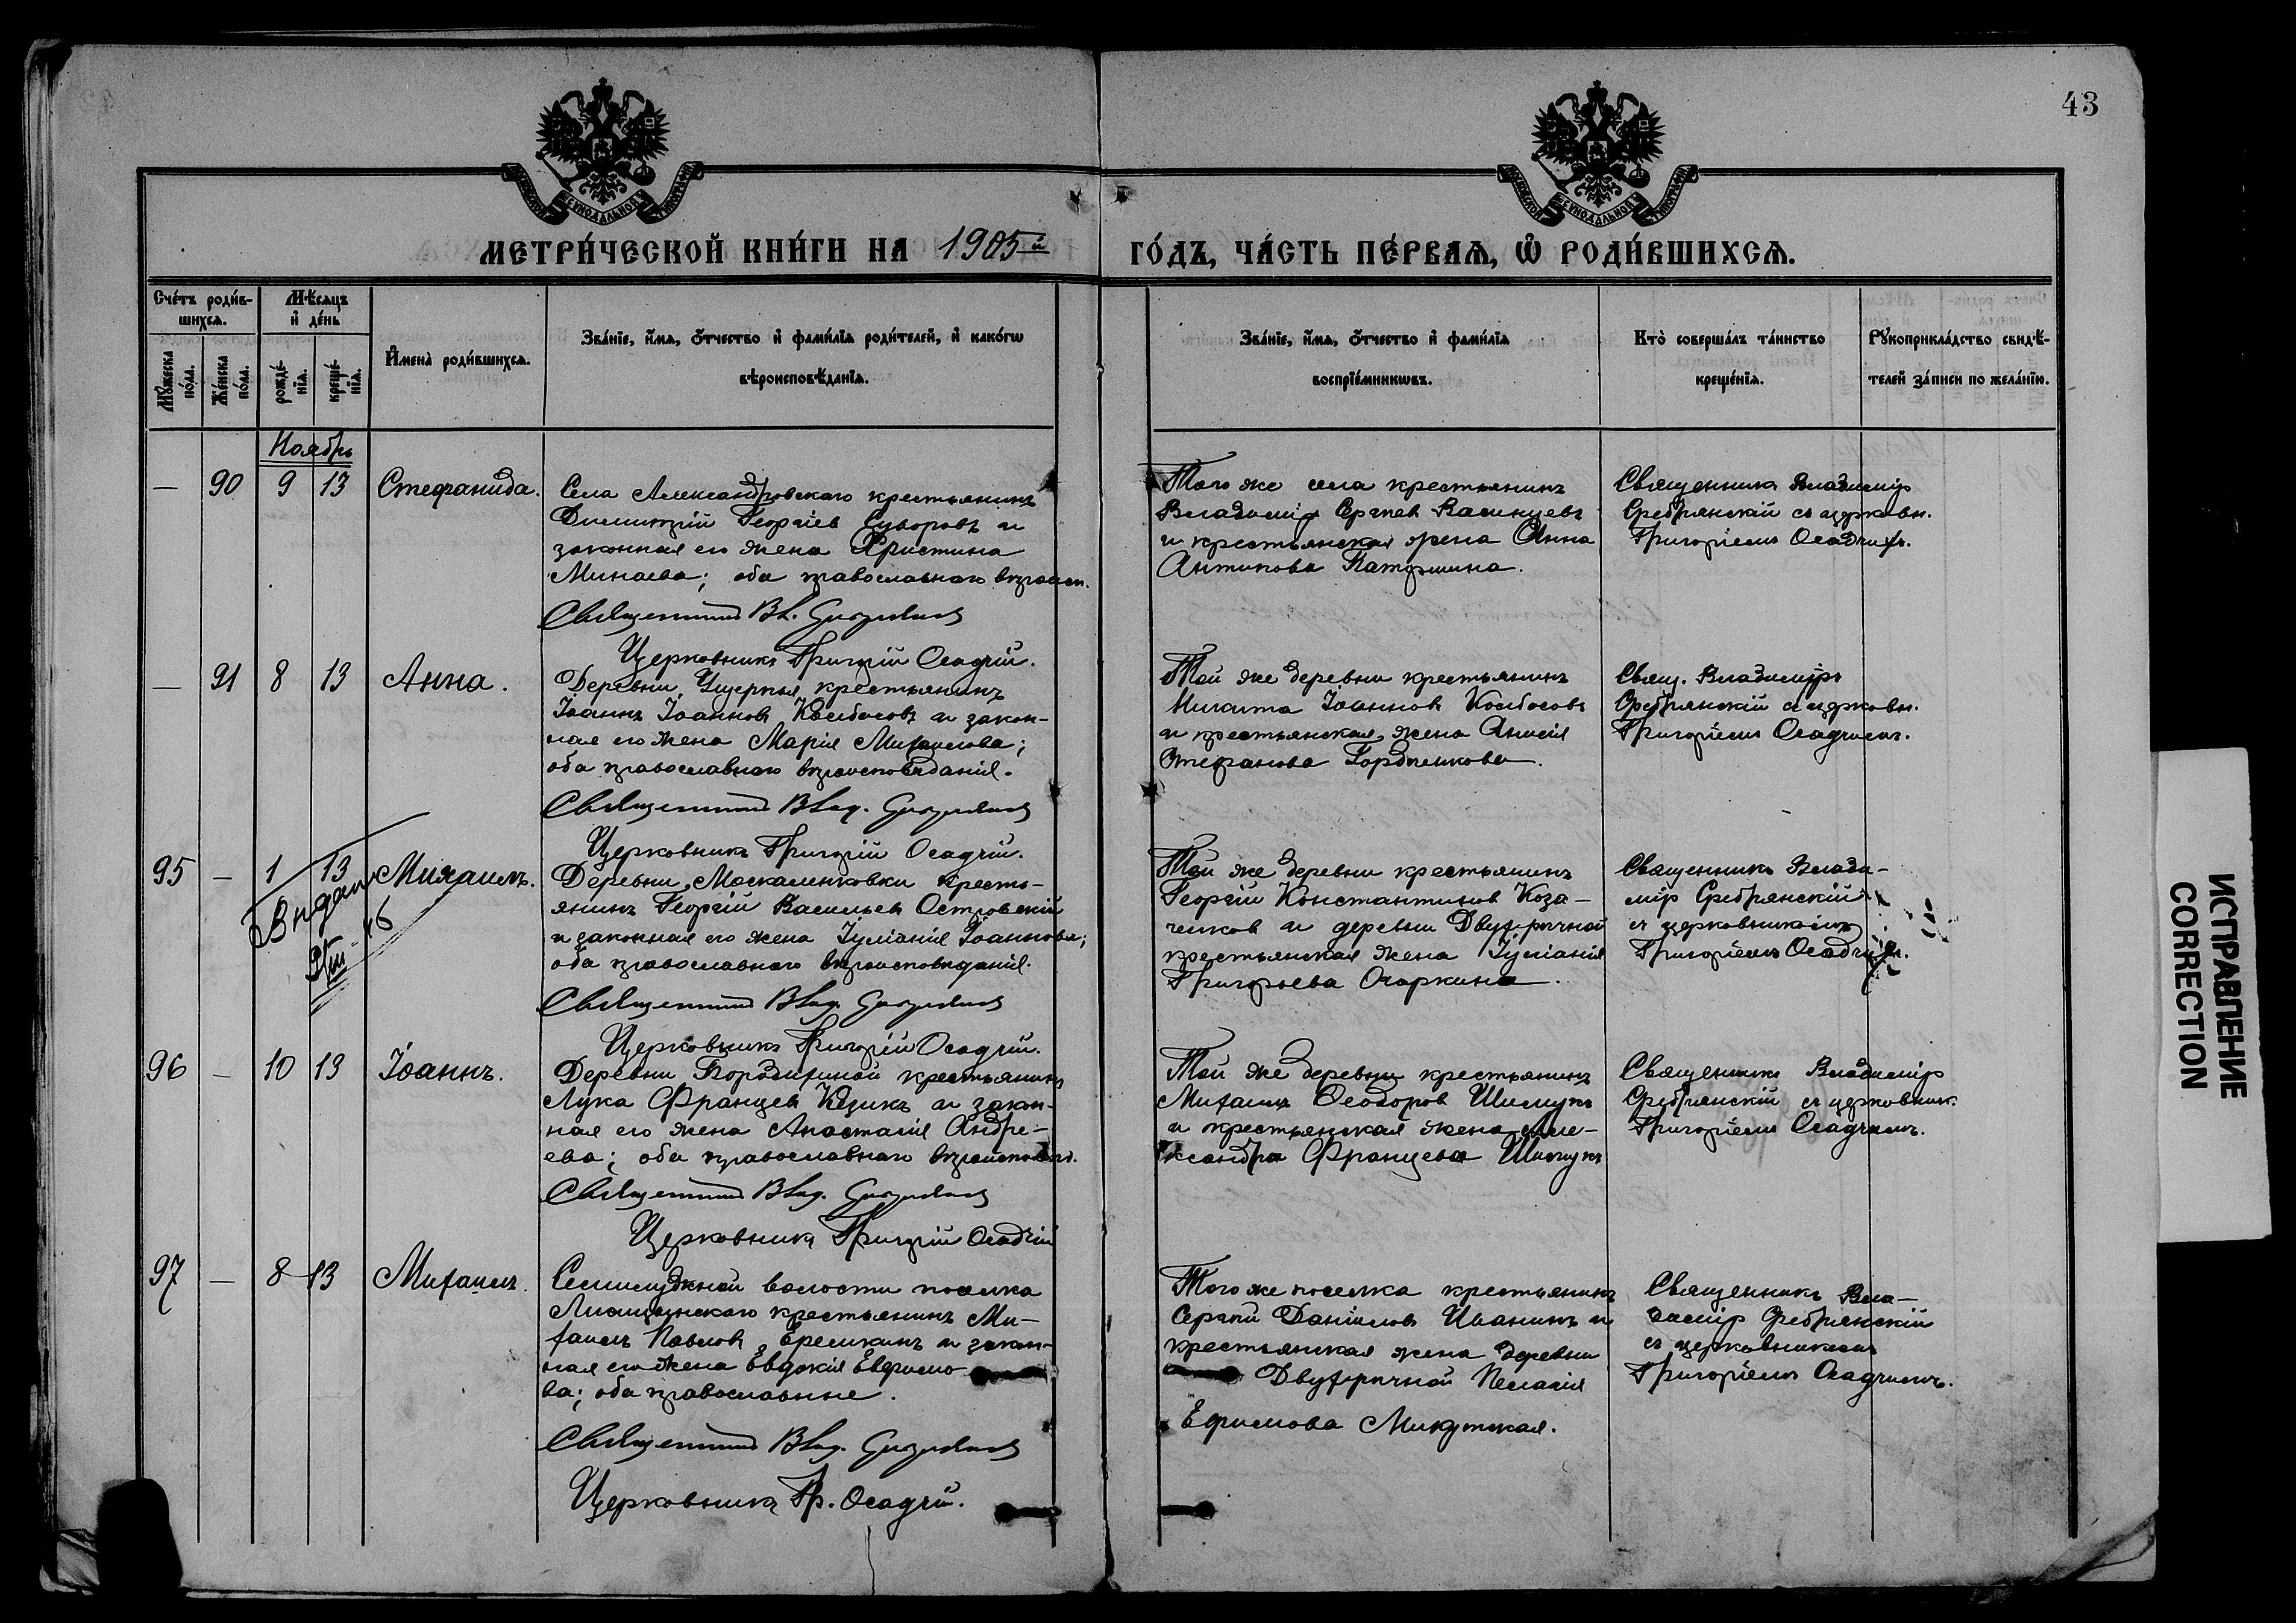 43
МЕТРИ́ЧЕСКОЙ КНИ́ГИ НА 1905й ГО́ДЪ, ЧА́СТЬ ПЕ́РВАѦ, Ѽ РОДИ́ВШИХСѦ.
Сче́тъ роди́в-
шихсѧ.
Мꙋ́жеска по́ла.
Же́нска по́ла.
Мѣ́сѧцъ
и҆ де́нь
рожде́-
нїѧ.
креще́-
нїѧ.
И҆мена̀ роди́вшихсѧ.
Зва́нїе, и҆́мѧ, ѻ҆́тчество и҆ фами́лїѧ роди́телей, и҆ како́гѡ
вѣроисповѣ́данїѧ.
Зва́нїе, и҆́мѧ, ѻ҆́тчество и҆ фами́лїѧ
воспрїе́мникѡвъ.
Кто̀ соверша́лъ та́инство
креще́нїѧ.
Рꙋкоприкла́дство свидѣ́-
телей за́писи по жела́нїю.
Ноябрь
— 90 9 13 Стефанида.
Села Александровскаго крестьянинъ
Димитрій Георгіев Суворовъ и
законная его жена Христина
Минаева; оба православнаго вѣроисп.
Священникъ Вл.
Церковникъ Григорій Осадчій.
Того же села крестьянинъ
Владимір Сергѣев
и крестьянская жена Анна
Антипова
Священникъ Владимір
Сребрянскій съ церковн.
Григоріемъ Осадчимъ.
— 91 8 13 Анна.
Деревни крестьянинъ
Іоаннъ Іоаннов Колбасовъ и закон-
ная его жена Марія Михаилова;
оба православнаго вѣроисповѣданія.
Священникъ Влад.
Церковникъ Григорій Осадчій.
Той же деревни крестьянинъ
Никита Іоаннов Колбасовъ
и крестьянская жена Анисія
Стефанова Гордиенкова.
Свящ. Владиміръ
Сребрянскій съ церковн.
Григоріемъ Осадчимъ.
95 — 1 13 Михаилъ.
Выдан
Деревни Москаленковки кресть-
янинъ Георгій Васильев Островскій
и законная его жена Іуліанія Іоаннова;
оба православнаго вѣроисповѣданія.
Священникъ Влад.
Церковникъ Григорій Осадчій.
Той же деревни крестьянинъ
Георгій Константинов Коза-
ченков и деревни Двухрѣчной
крестьянская жена Іуліанія
Григорьева Очаркина.
Священникъ Влади-
мір Сребрянскій
съ церковникомъ
Григоріемъ Осадчим.
96 — 10 13 Іоаннъ.
Деревни Бородиной крестьянинъ
Лука Францев Козикъ и закон-
ная его жена Анастасія Андре-
ева; оба православнаго вѣроисповѣд.
Священникъ Влад.
Церковникъ Григорій Осадчій
Той же деревни крестьянинъ
Михаилъ Ѳеодоров Шимукъ
и крестьянская жена Але-
ксандра Францева Шимукъ
Священникъ Владимір
Сребрянскій съ церковник.
Григоріемъ Осадчимъ.
97 — 8 13 Михаилъ.
Семилужной волости поселка
крестьянинъ Ми-
хаилъ Павлов Еремкинъ и закон-
ная его жена Евдокія Евфимо-
ва; оба православные.
Священникъ Влад.
Церковникъ Гр. Осадчій.
Того же поселка крестьянинъ
Сергѣй Даніилов Иванинъ и
крестьянская жена деревни
Двухрѣчной Пелагія
Ефимова Микутская.
Священникъ Вла-
димір Сребрянскій
съ церковникомъ
Григоріемъ Осадчимъ.
ИСПРАВЛЕНИЕ
CORRECTION